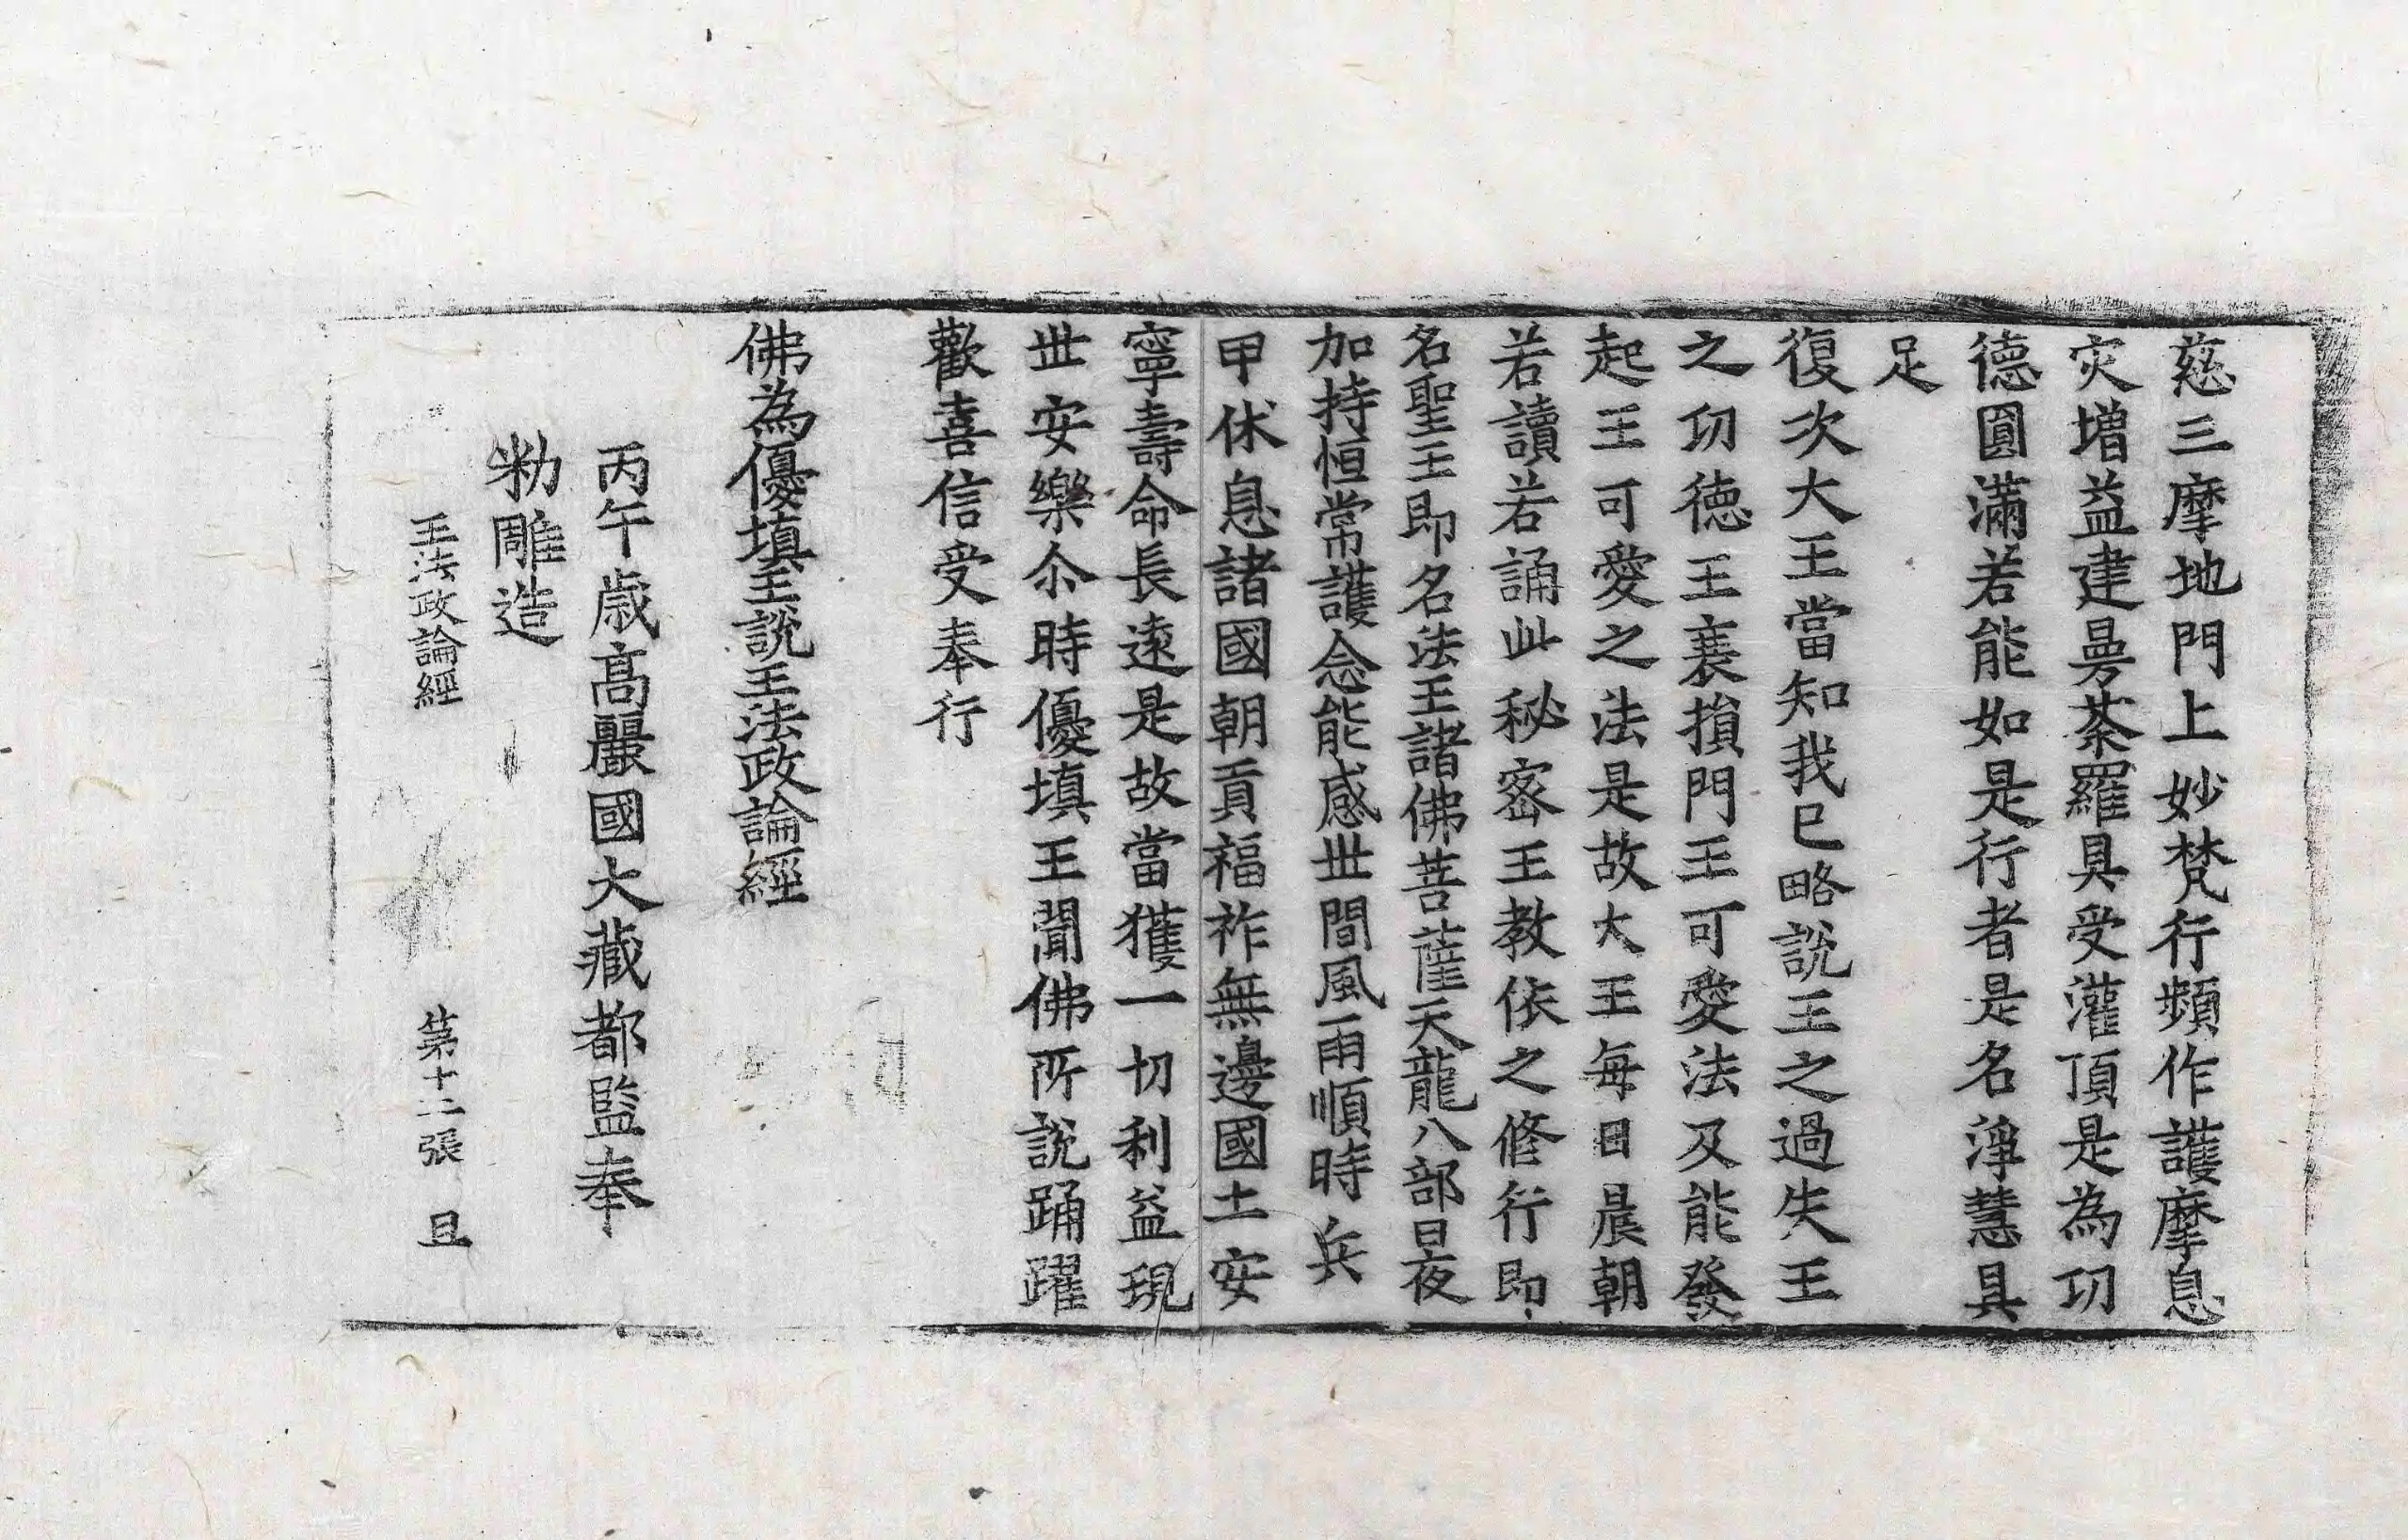 慈三摩地門上妙梵行頻作護摩息
灾增益建曼荼羅具受灌頂是為㓛
德圓滿若能如是行者是名淨慧具
足
復次大王當知我已略說王之過失王
之㓛德王衰損門王可愛法及能發
起王可愛之法是故大王每日晨朝
若讀若誦此秘密王教依之修行即
名聖王即名法王諸佛菩薩天龍八部日夜
加持恒常護念能感世間風雨順時兵
甲休息諸國朝貢福祚無邊國土安
寧壽命長遠是故當獲一切利益現
世安樂尒時優填王聞佛所說踊躍
歡喜信受奉行
佛為優填王說王法政論經
丙午歲高麗國大藏都監奉
勑雕造
王法政論經 第十二張 且